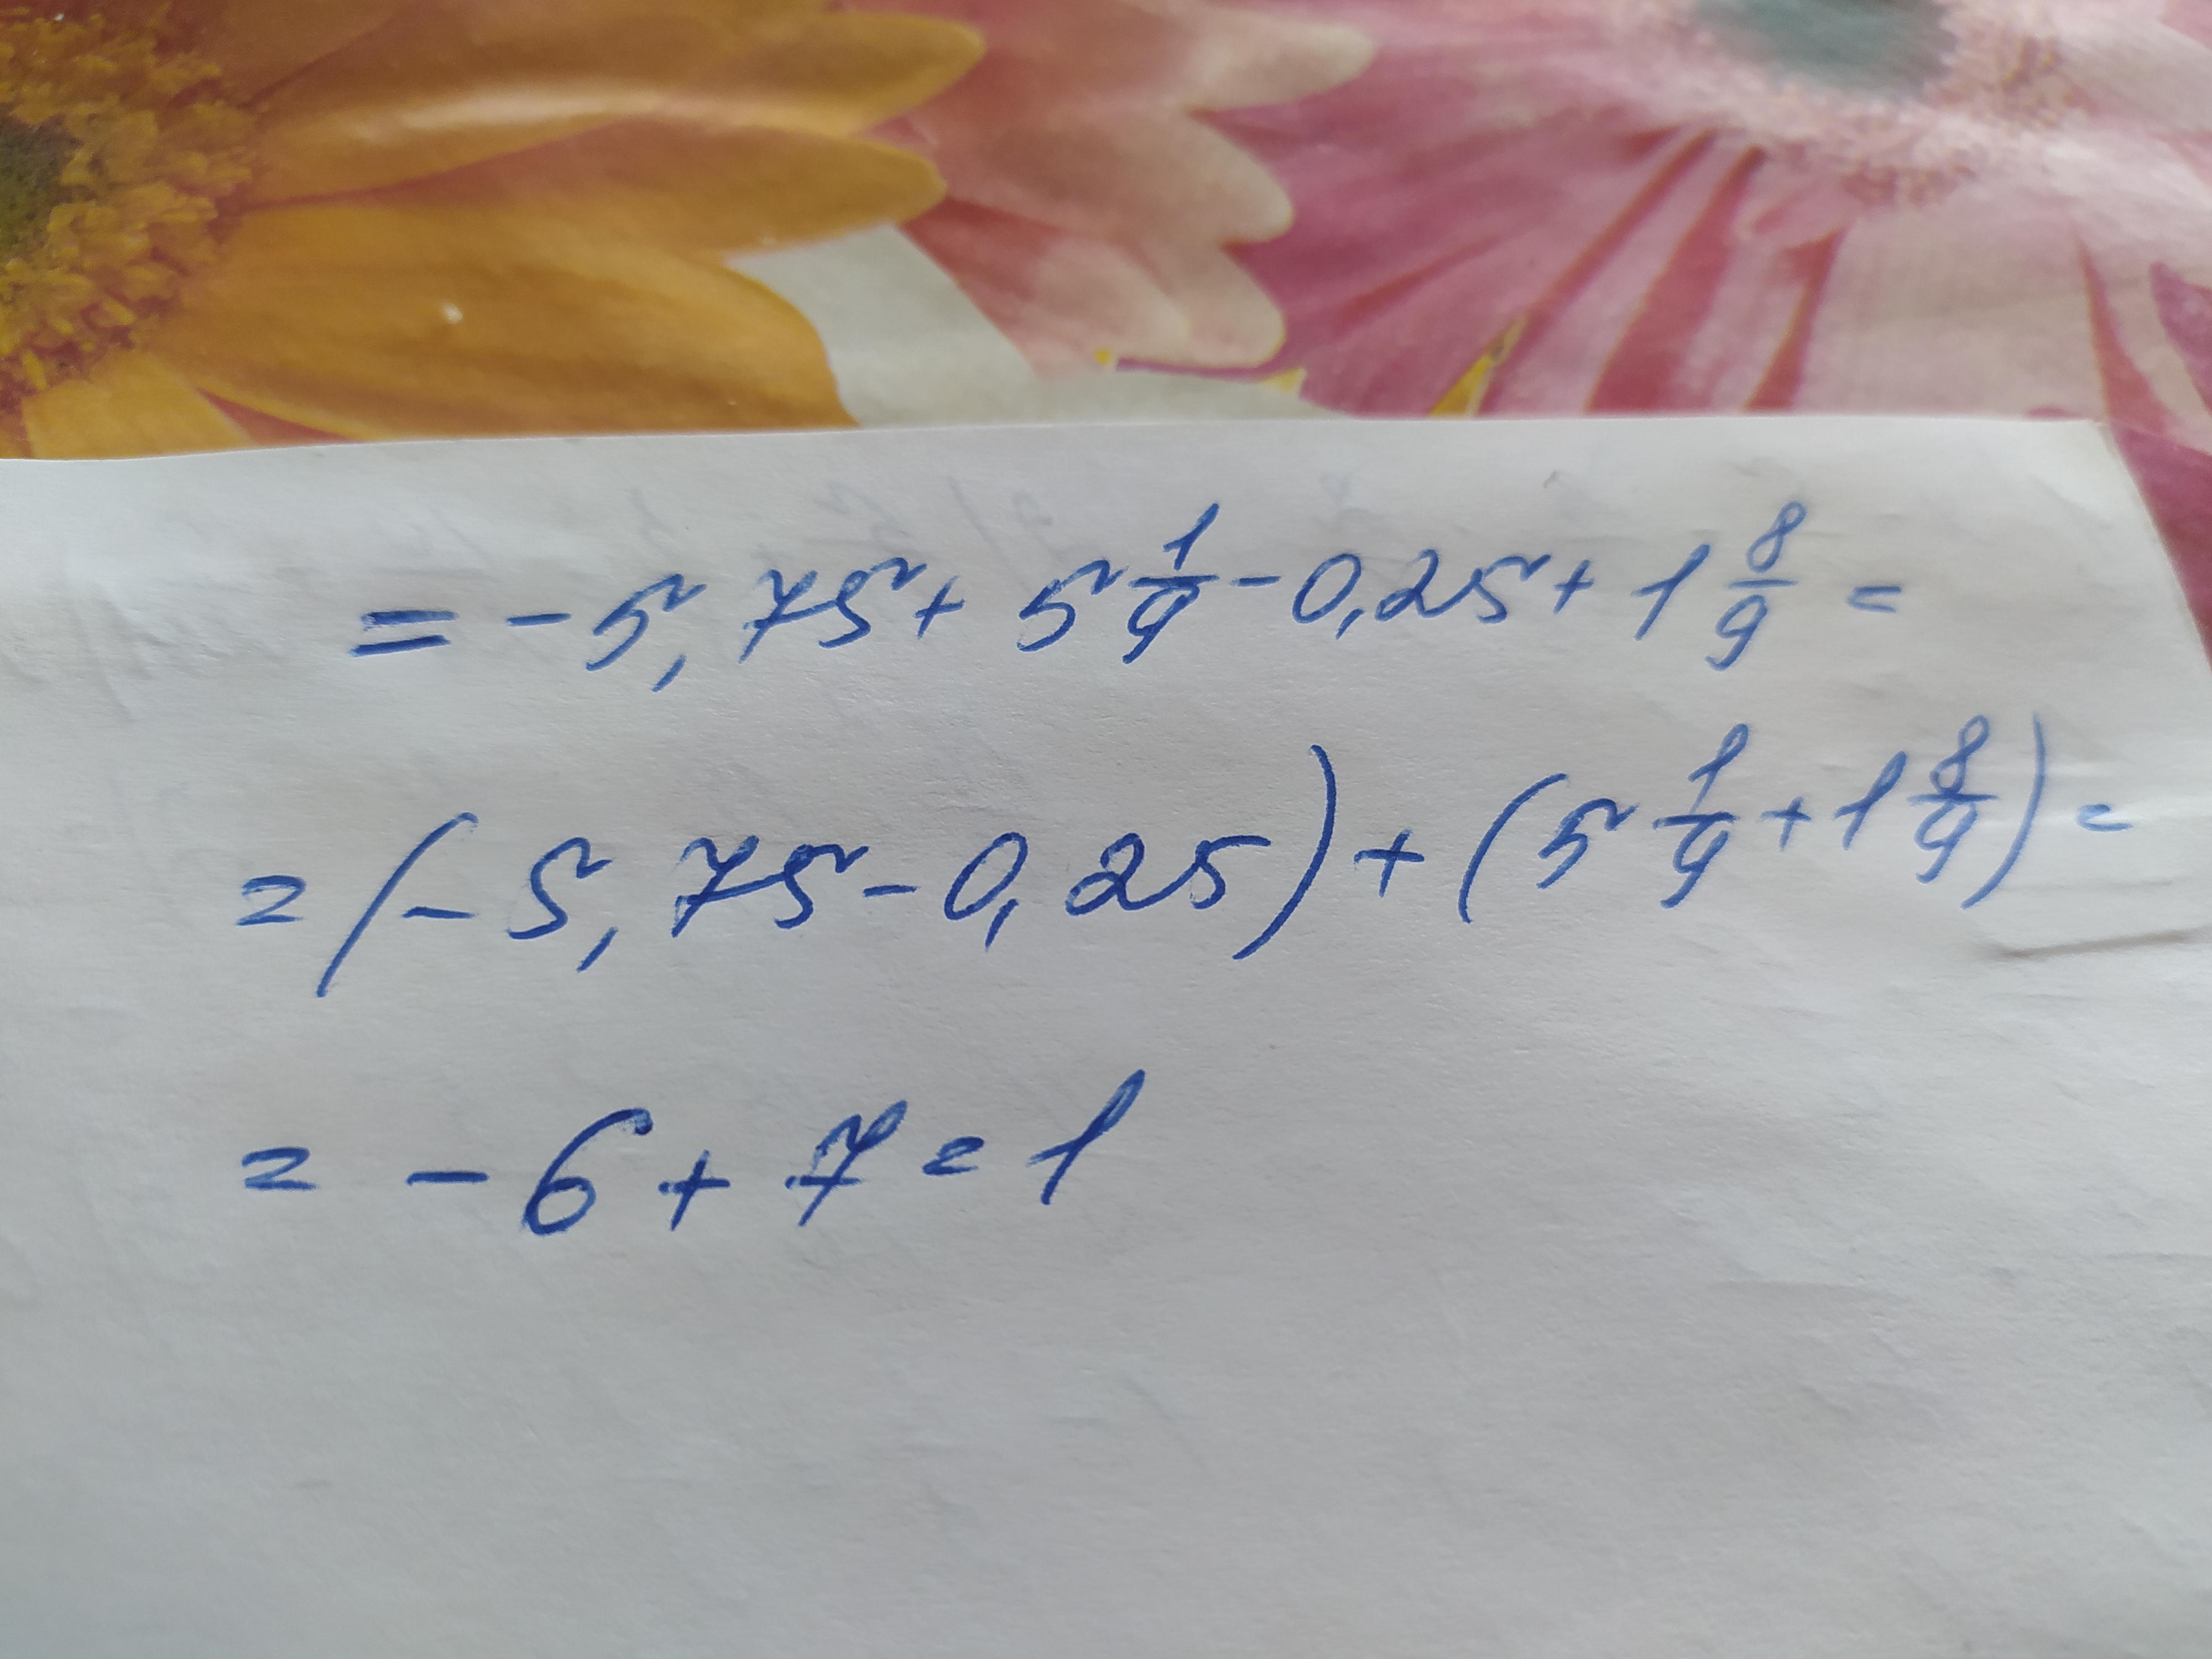 = -5,75 + 5 1/9 - 0,25 + 1 8/9 =
= (-5,75 - 0,25) + (5 1/9 + 1 8/9) =
= -6 + 7 = 1